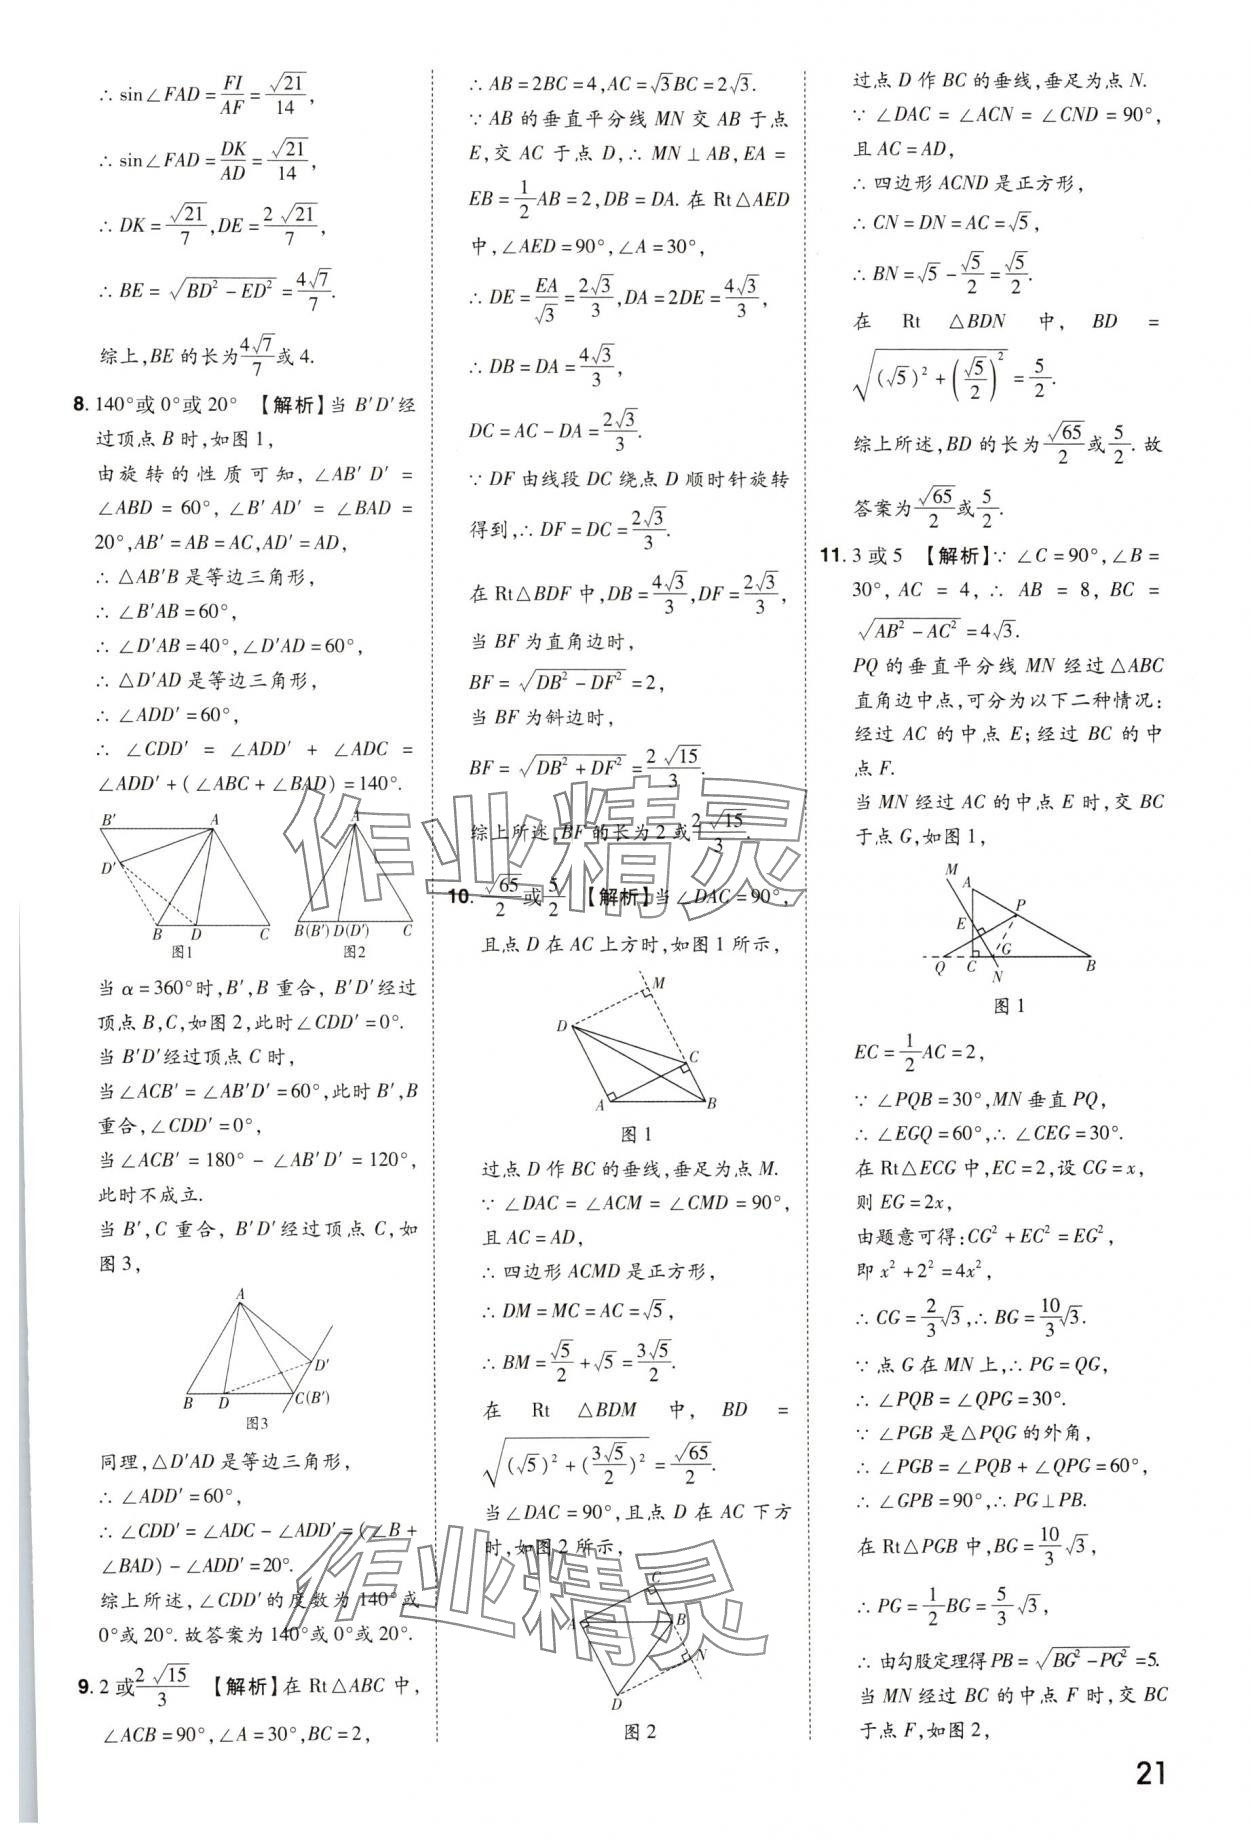 ∴ sin∠FAD = FI/AF = √21/14,
∴ sin∠FAD = DK/AD = √21/14,
∴ DK = √21/7, DE = 2√21/7,
∴ BE = √(BD² - ED²) = 4√7/7.
综上, BE 的长为 4√7/7 或 4.
8. 140°或 0°或 20° 【解析】当 B′D′经
过顶点 B 时,如图 1,
由旋转的性质可知, ∠AB′D′ =
∠ABD = 60°, ∠B′AD′ = ∠BAD =
20°, AB′ = AB = AC, AD′ = AD,
∴ △AB′B 是等边三角形,
∴ ∠B′AB = 60°,
∴ ∠D′AB = 40°, ∠D′AD = 60°,
∴ △D′AD 是等边三角形,
∴ ∠ADD′ = 60°,
∴ ∠CDD′ = ∠ADD′ + ∠ADC =
∠ADD′ + (∠ABC + ∠BAD) = 140°.
B′ A A
D′
B D C B(B′) D(D′) C
图1 图2
当 α = 360°时, B′, B 重合, B′D′经过
顶点 B, C, 如图 2, 此时∠CDD′ = 0°.
当 B′D′经过顶点 C 时,
当∠ACB′ = ∠AB′D′ = 60°, 此时 B′, B
重合, ∠CDD′ = 0°,
当∠ACB′ = 180° - ∠AB′D′ = 120°,
此时不成立.
当 B′, C 重合, B′D′经过顶点 C, 如
图 3,
A
D′
B D C(B′)
图3
同理, △D′AD 是等边三角形,
∴ ∠ADD′ = 60°,
∴ ∠CDD′ = ∠ADC - ∠ADD′ = (∠B +
∠BAD) - ∠ADD′ = 20°.
综上所述, ∠CDD′的度数为 140°或
0°或 20°. 故答案为 140°或 0°或 20°.
9. 2 或 2√15/3 【解析】在 Rt△ABC 中,
∠ACB = 90°, ∠A = 30°, BC = 2,
∴ AB = 2BC = 4, AC = √3BC = 2√3.
∵ AB 的垂直平分线 MN 交 AB 于点
E, 交 AC 于点 D, ∴ MN⊥AB, EA =
EB = 1/2 AB = 2, DB = DA. 在 Rt△AED
中, ∠AED = 90°, ∠A = 30°,
∴ DE = EA/√3 = 2√3/3, DA = 2DE = 4√3/3,
∴ DB = DA = 4√3/3,
DC = AC - DA = 2√3/3.
∵ DF 由线段 DC 绕点 D 顺时针旋转
得到, ∴ DF = DC = 2√3/3.
在 Rt△BDF 中, DB = 4√3/3, DF = 2√3/3,
当 BF 为直角边时,
BF = √(DB² - DF²) = 2,
当 BF 为斜边时,
BF = √(DB² + DF²) = 2√15/3.
综上所述, BF 的长为 2 或 2√15/3.
10. √65/2 或 5/2 【解析】当∠DAC = 90°,
且点 D 在 AC 上方时, 如图 1 所示,
M
D
C
A B
图 1
过点 D 作 BC 的垂线, 垂足为点 M.
∵ ∠DAC = ∠ACM = ∠CMD = 90°,
且 AC = AD,
∴ 四边形 ACMD 是正方形,
∴ DM = MC = AC = √5,
∴ BM = √5/2 + √5 = 3√5/2.
在 Rt △BDM 中, BD =
√((√5)² + (3√5/2)²) = √65/2.
当∠DAC = 90°, 且点 D 在 AC 下方
时, 如图 2 所示,
C
A B
N
D
图 2
过点 D 作 BC 的垂线, 垂足为点 N.
∵ ∠DAC = ∠ACN = ∠CND = 90°,
且 AC = AD,
∴ 四边形 ACND 是正方形,
∴ CN = DN = AC = √5,
∴ BN = √5 - √5/2 = √5/2.
在 Rt △BDN 中, BD =
√((√5)² + (√5/2)²) = 5/2.
综上所述, BD 的长为 √65/2 或 5/2. 故
答案为 √65/2 或 5/2.
11. 3 或 5 【解析】∵ ∠C = 90°, ∠B =
30°, AC = 4, ∴ AB = 8, BC =
√(AB² - AC²) = 4√3.
PQ 的垂直平分线 MN 经过△ABC
直角边中点, 可分为以下二种情况:
经过 AC 的中点 E; 经过 BC 的中
点 F.
当 MN 经过 AC 的中点 E 时, 交 BC
于点 G, 如图 1,
M
A
P
E
G
Q C N B
图 1
EC = 1/2 AC = 2,
∵ ∠PQB = 30°, MN 垂直 PQ,
∴ ∠EGQ = 60°, ∴ ∠CEG = 30°.
在 Rt△ECG 中, EC = 2, 设 CG = x,
则 EG = 2x,
由题意可得: CG² + EC² = EG²,
即 x² + 2² = 4x²,
∴ CG = 2/3 √3, ∴ BG = 10/3 √3.
∵ 点 G 在 MN 上, ∴ PG = QG,
∴ ∠PQB = ∠QPG = 30°.
∵ ∠PGB 是△PQG 的外角,
∴ ∠PGB = ∠PQB + ∠QPG = 60°,
∴ ∠GPB = 90°, ∴ PG⊥PB.
在 Rt△PGB 中, BG = 10/3 √3,
∴ PG = 1/2 BG = 5/3 √3,
∴ 由勾股定理得 PB = √(BG² - PG²) = 5.
当 MN 经过 BC 的中点 F 时, 交 BC
于点 F, 如图 2,
作业精灵
作业精灵
21